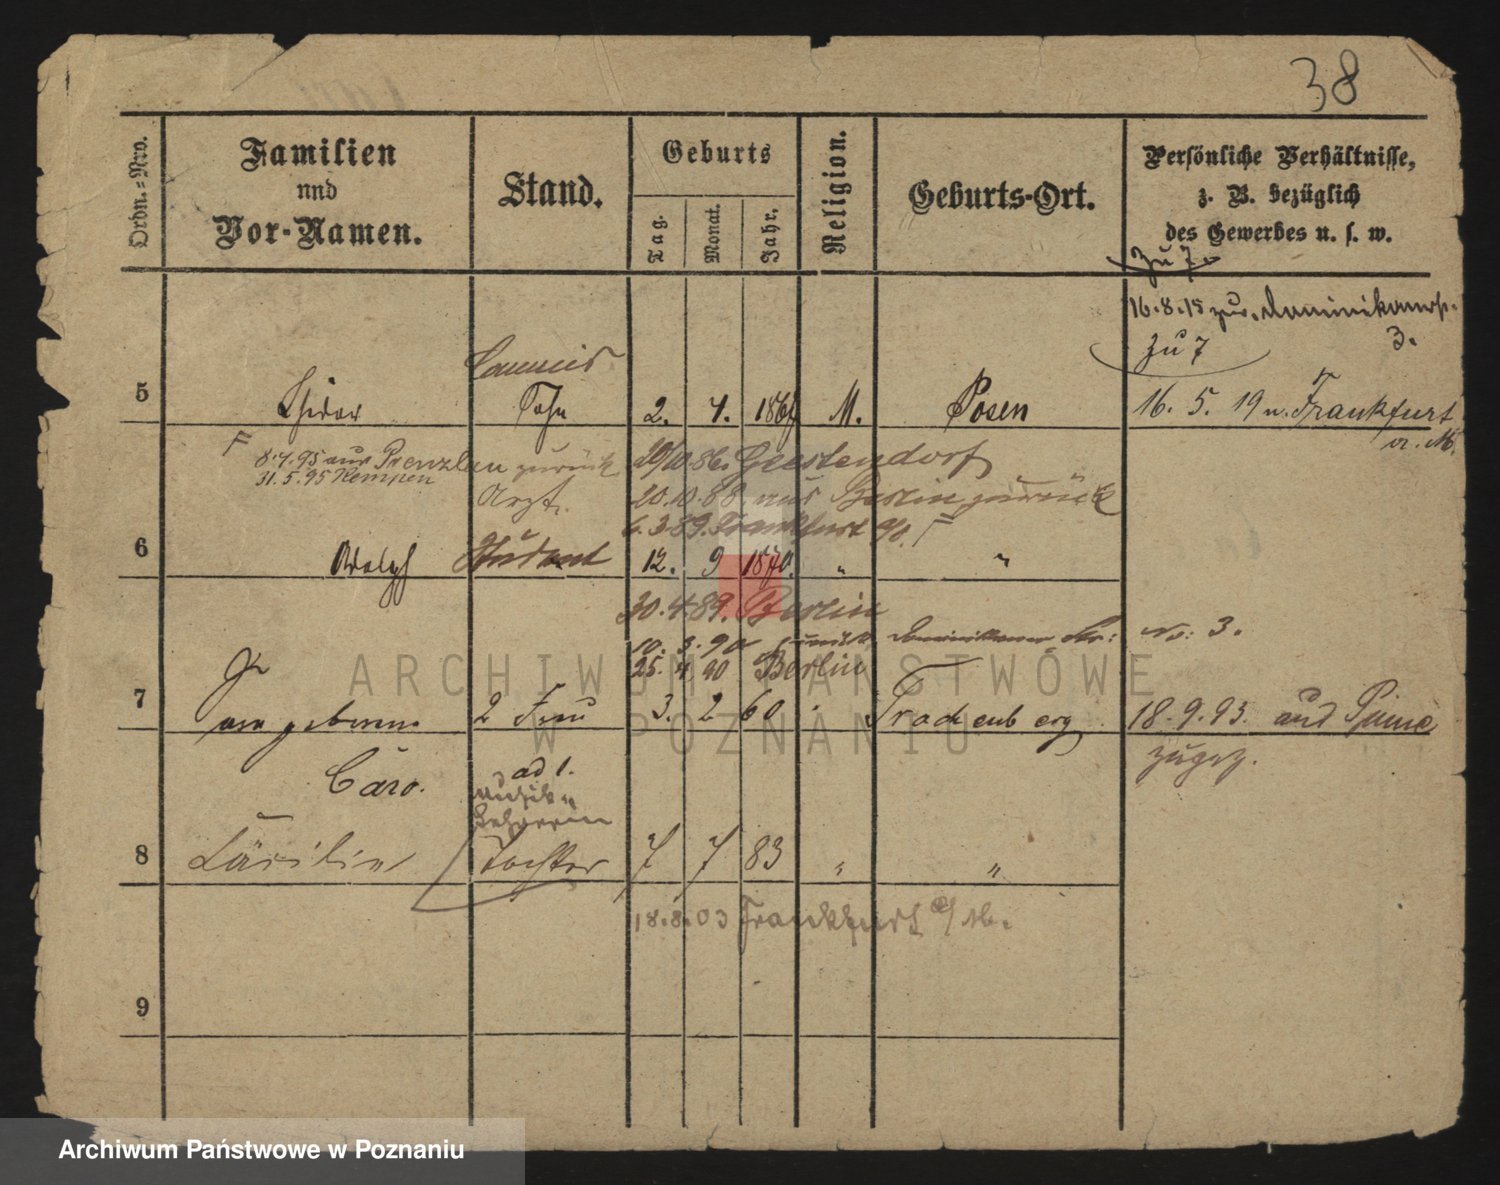 38
Ordn.-Nro.
Familien
und
Vor-Namen.
Stand.
Geburts
Tag.
Monat.
Jahr.
Religion.
Geburts-Ort.
Persönliche Verhältnisse,
z. B. bezüglich
des Gewerbes u. s. w.
Zu 7.
16.8.15 zur. Dominikanerstr.
3.
Zu 7
16. 5. 19 n. Frankfurt
a. M.
5
Isidor
Commis
Sohn
2. 7. 186
M.
Posen
F
8.4.95 aus Prenzlau zurück
31.5.95 Kempen
86. Geestendorf
20.10.88 aus Berlin zurück
6.3.89. Frankfurt a/O. F
Arzt.
6
Adolph
Student
12. 9 1870. " "
30.4.89. Berlin
10. 3. 90 zurück Dominikaner Str: No: 3.
25. 4 90 Berlin
7
geborene
Caro.
2 Frau
3. 2 60
Trachenberg
18.9.93. aus Pinne
zugez.
ad 1.
Musik-
Lehrerin
8
Cäcilie
Tochter
7 7 83 " "
18.8.03 Frankfurt a/M.
9
ARCHIWUM PAŃSTWOWE
W POZNANIU
Archiwum Państwowe w Poznaniu